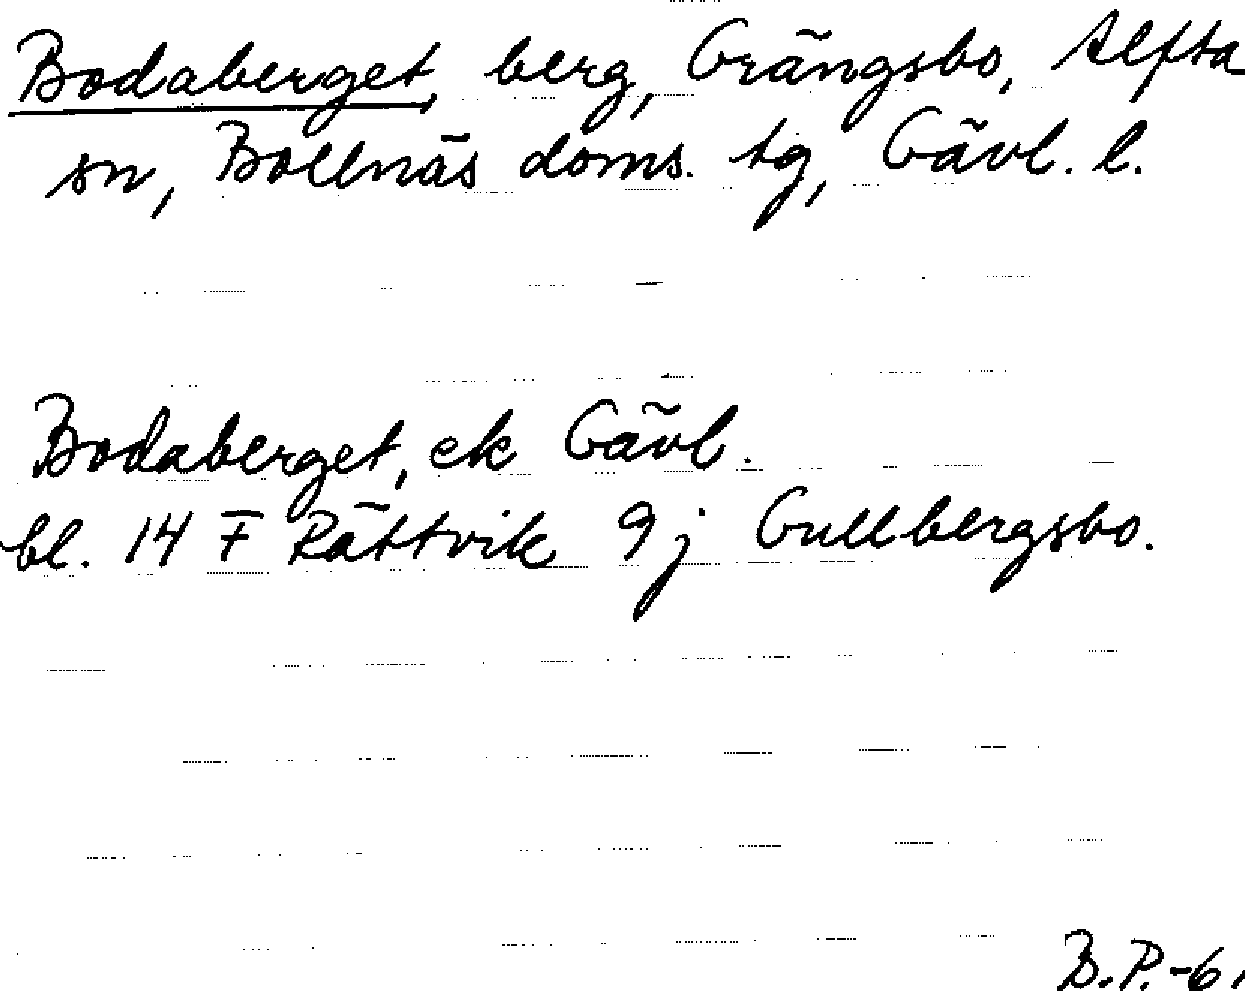 Bodaberget, berg, Grängsbo, Alfta
sn, Bollnäs doms. tg, Gävl. l.
Bodaberget, ek Gävl.
bl. 14 F Rättvik 9j Gullbergsbo.
B.P.-6